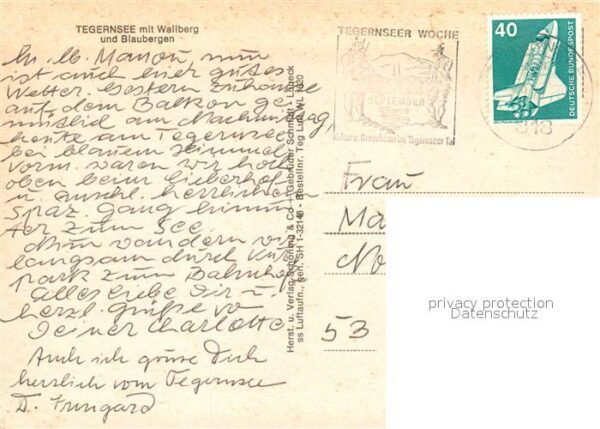 TEGERNSEE mit Wallberg
und Blaubergen
M. lb. Manon, nun
ist auch hier gutes
Wetter. Gestern zuhause
auf dem Balkon ge
mütlich am Nachmittag,
heute am Tegernsee
bei blauem Himmel.
Vorm. waren wir hoch
oben beim Lieberhof
u. anschl. herrlichen
Spaz. gang hinun
ter zum See.
Nun wandern wir
langsam durch Kur
park zum Bahnhof
Alles liebe Dir u.
herzl. Grüße von
Deiner Charlotte
Auch ich grüsse Dich
herzlich vom Tegernsee
D. Irmgard
Herst. u. Verlag Schöning & Co + Gebrüder Schmidt - Lübeck
ss Luftaufn., gen. SH 1-32146 - Bestellnr. Teg Lud. WL 1820
TEGERNSEER WOCHE
SEPTEMBER
Kultur u. Brauchtum im Tegernseer Tal
40
DEUTSCHE BUNDESPOST
818
Frau
Ma
No
53
privacy protection
Datenschutz